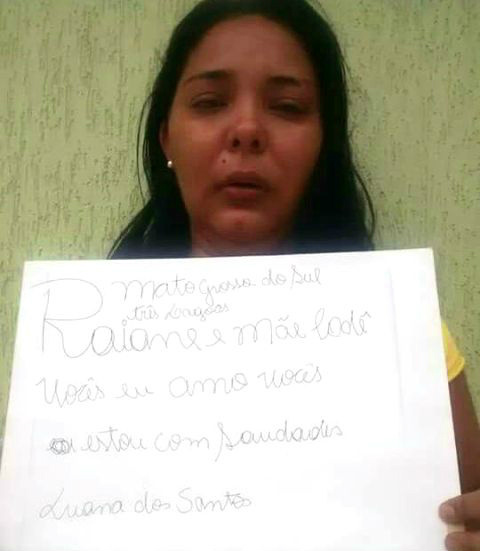 Mato Grosso do Sul
três Lagoas
Raiane e Mãe Cadê
Vocês eu amo vocês
estou com Saudades
Luana dos Santos